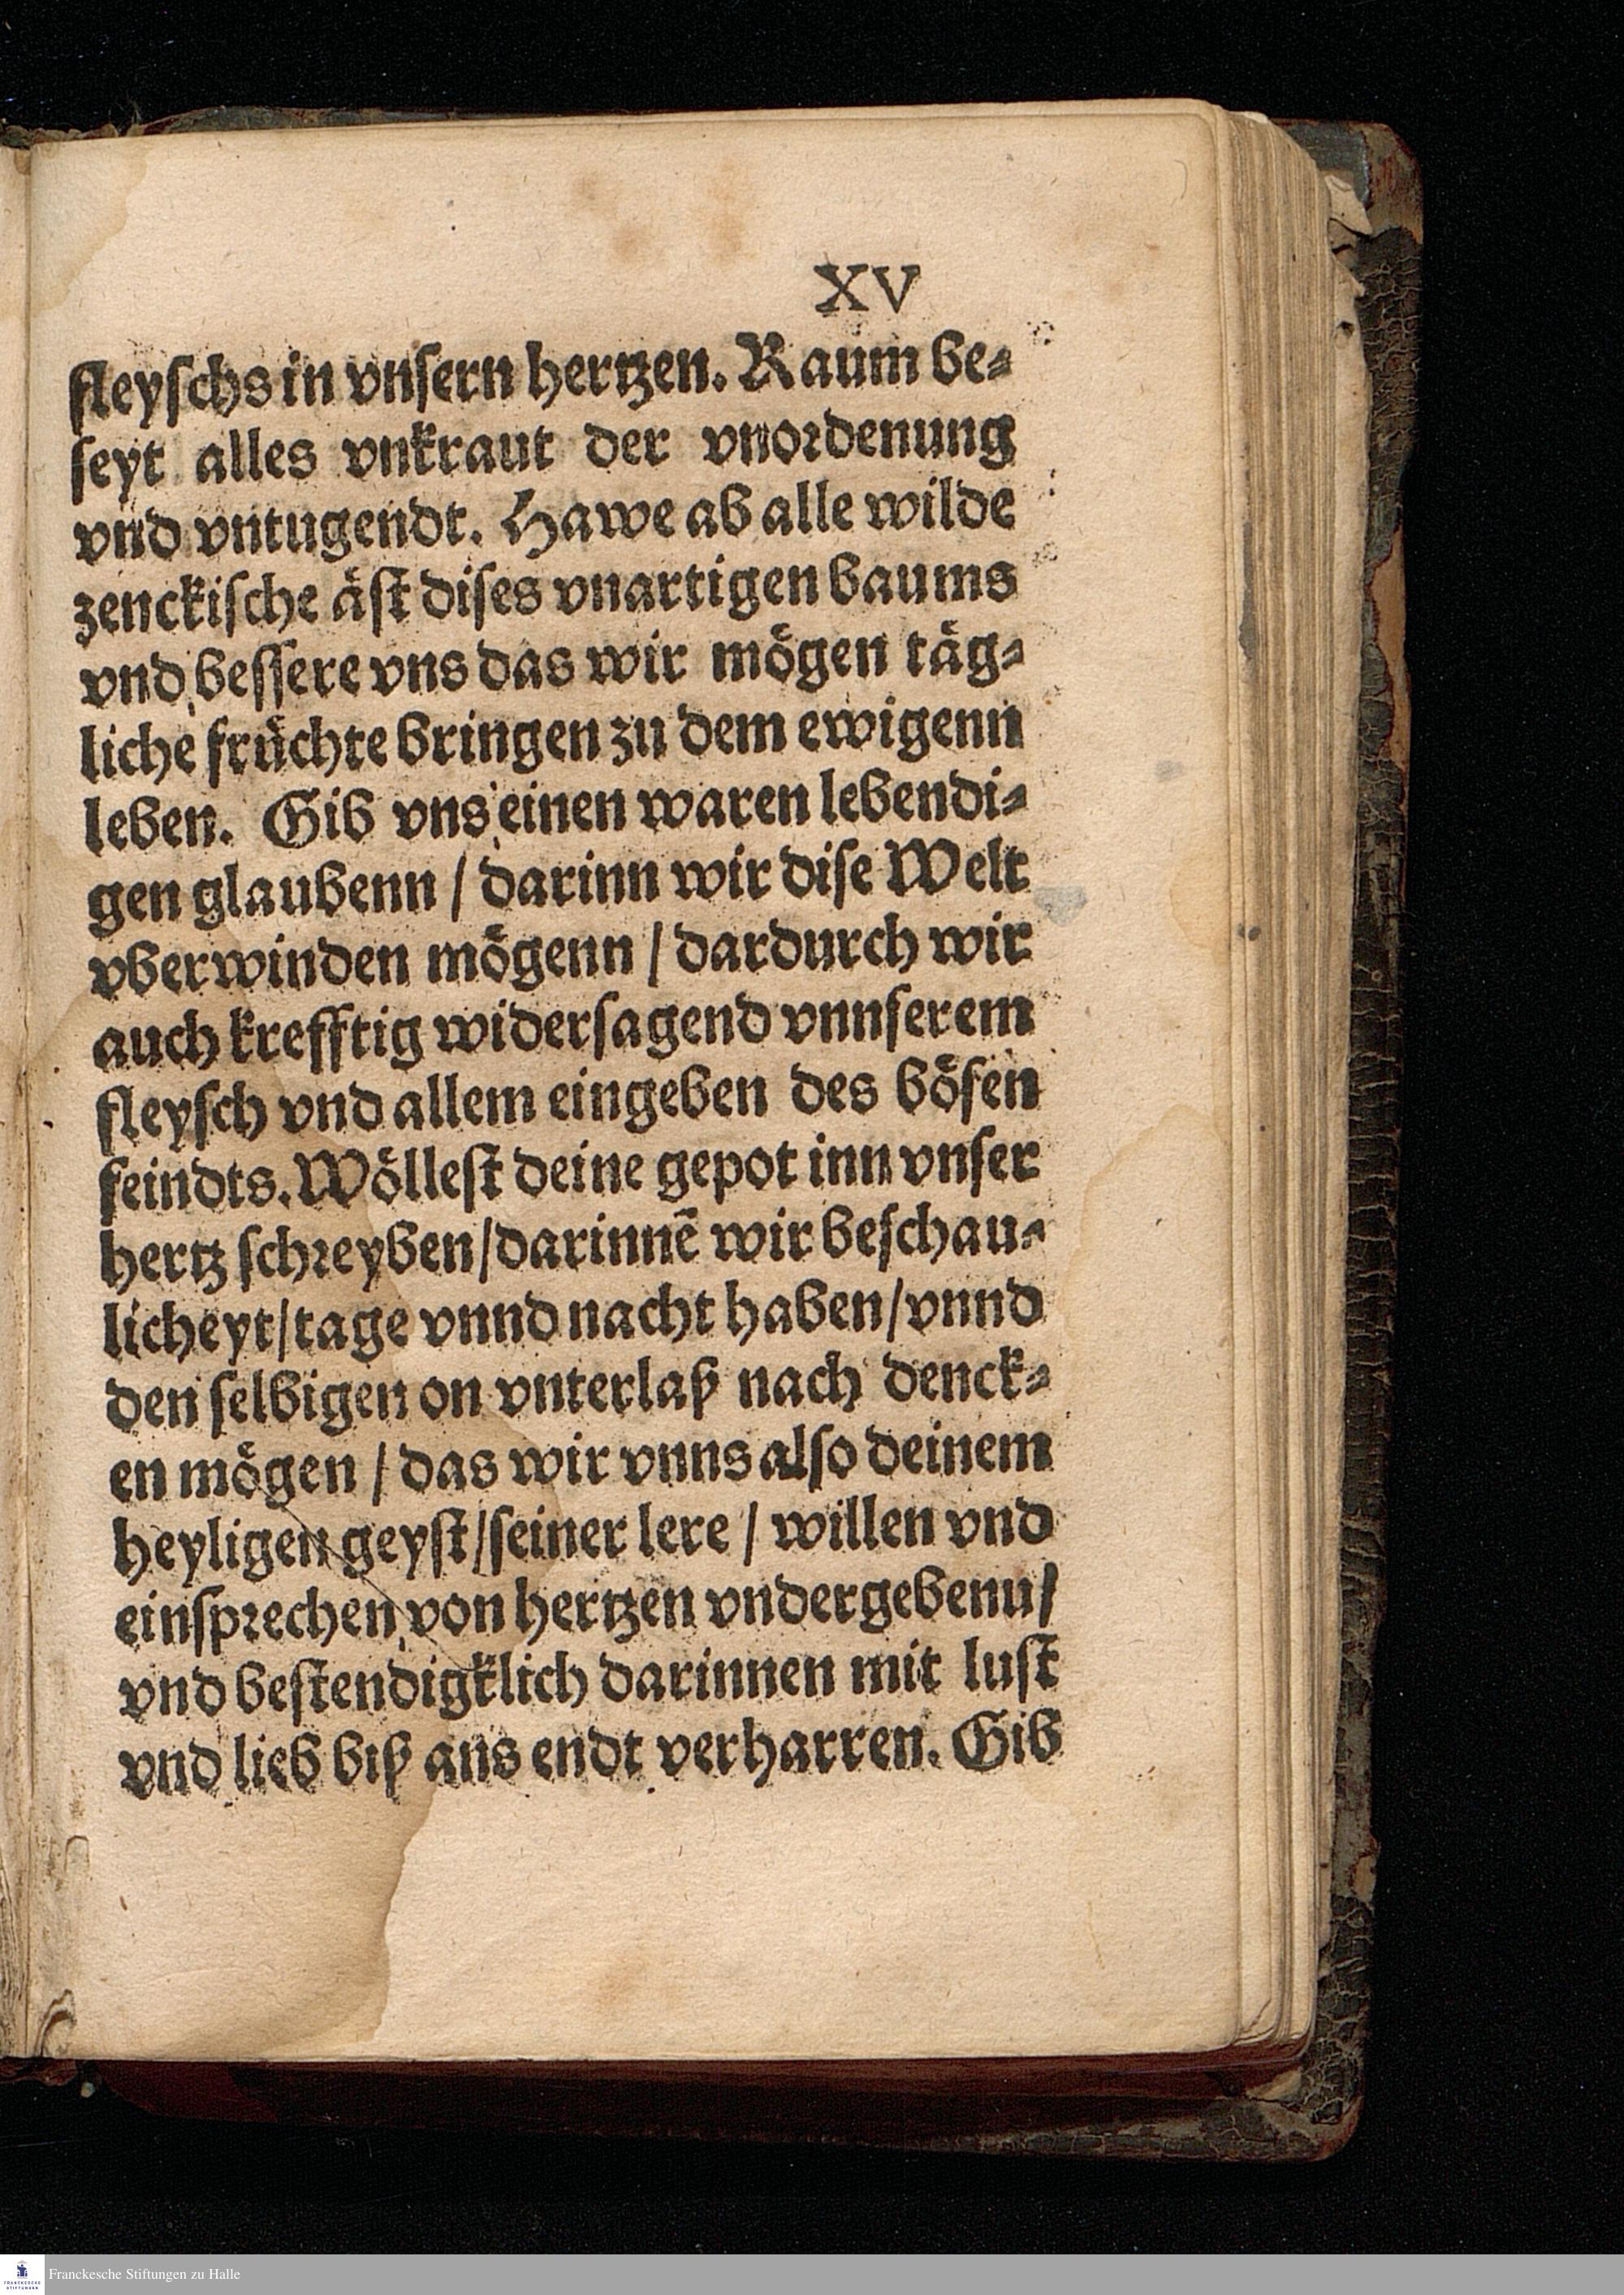 XV
fleyschs in vnsern hertzen. Raum be⸗
seyt alles vnkraut der vnordenung
vnd vntugendt. Hawe ab alle wilde
zenckische äst dises vnartigen baums
vnd bessere vns das wir mögen täg⸗
liche früchte bringen zu dem ewigenn
leben. Gib vns einen waren lebendi⸗
gen glaubenn / darinn wir dise Welt
vberwinden mögenn / dardurch wir
auch krefftig widersagend vnnserem
fleysch vnd allem eingeben des bösen
feindts. Wöllest deine gepot inn vnser
hertz schreyben/darinnē wir beschau⸗
licheyt/tage vnnd nacht haben/vnnd
den selbigen on vnterlaß nach denck⸗
en mögen / das wir vnns also deinem
heyligen geyst/seiner lere / willen vnd
einsprechen von hertzen vndergebenu/
vnd bestendigklich darinnen mit lust
vnd lieb biß ans endt verharren. Gib
FRANCKESCHE
STIFTUNGEN
Franckesche Stiftungen zu Halle